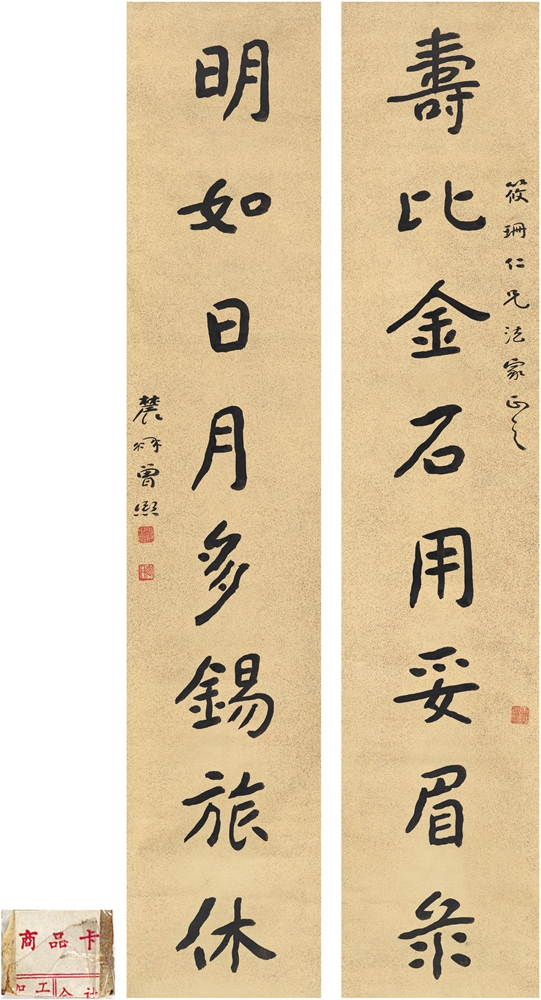 壽比金石用妥眉彔
筱珊仁兄法家正之
明如日月多錫旅休
農髯曾熙
商品卡
加工 会计